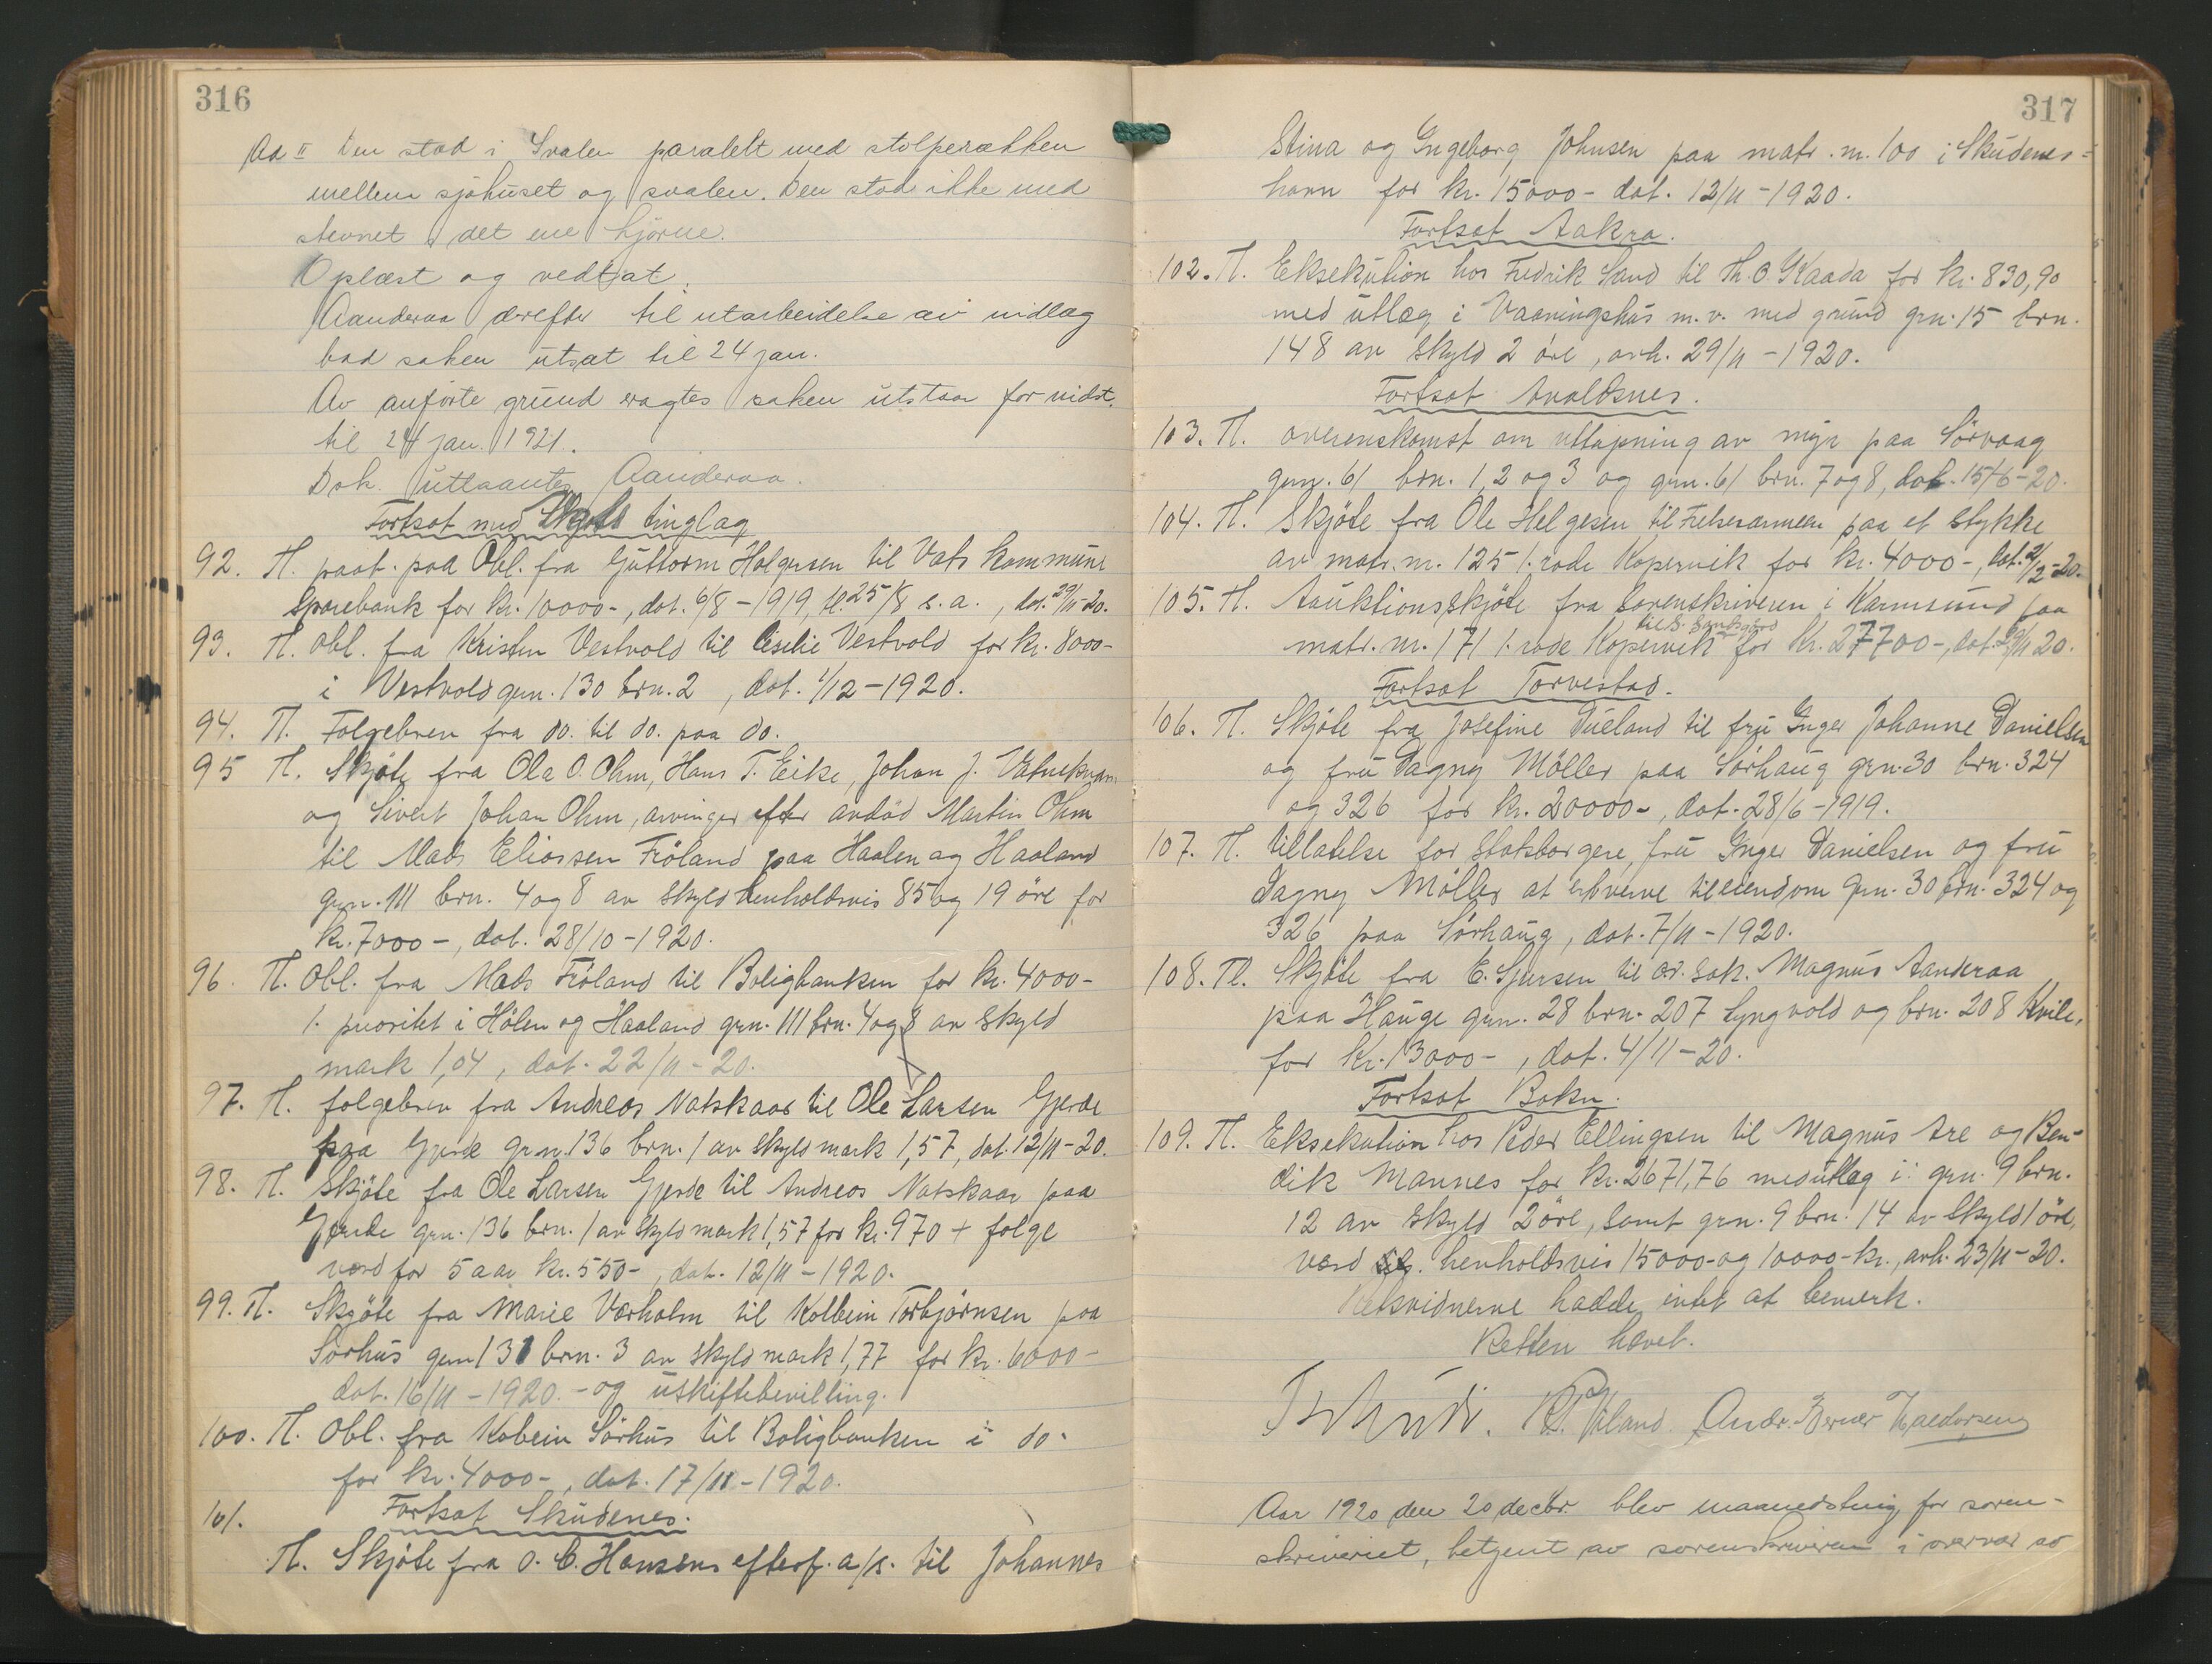 316
Ad II Den stod i Svalen paralelt med stolperækken
mellem sjøhuset og svalen. Den stod ikke med
stevnet i det ene hjørne.
Oplæst og vedtat.
Aanderaa derefter til utarbeidelse av indlæg
bad saken utsat til 24 jan.
Av anførte grund eragtes saken utstaar for vidst.
til 24 jan. 1921.
Dok. utlaantes Aanderaa.
Fortsat med Skjold tinglag
92. Tl. paat. paa Obl. fra Guttorm Holgersen til Vats kommune
Sparebank for kr. 10000-, dat. 6/8-1919, tl. 25/8 s.a., dat. 29/11-20.
93. Tl. Obl. fra Kristen Vestvold til Cisilie Vestvold for kr. 8000-
i Vestvold grn. 130 brn. 2, dat. 1/12-1920.
94. Tl. Følgebrev fra do. til do. paa do.
95 Tl. Skjøte fra Ola O. Ohm, Hans T. Eike, Johan J. Vatnekvam
og Sivert Johan Ohm, arvinger efter avdød Martin Ohm
til Mads Eliassen Frøland paa Haalen og Haaland
grn. 111 brn. 4 og 8 av skyld henholdsvis 85 og 19 øre for
kr. 7000-, dat. 28/10-1920.
96. Tl. Obl. fra Mads Frøland til Boligbanken for kr. 4000-
1. prioritet i Hølen og Haaland grn. 111 brn. 4 og 8 av skyld
mark 1,04, dat. 22/11-20.
97. Tl. følgebrev fra Andreas Natskaar til Ole Larsen Gjerde
paa Gjerde grn. 136 brn. 1 av skyld mark 1,57, dat. 12/11-20.
98. Tl. Skjøte fra Ole Larsen Gjerde til Andreas Natskaar paa
Gjerde grn. 136 brn. 1 av skyld mark 1,57 for kr. 970 + følge
værd for 5 aar kr. 550-, dat. 12/11-1920.
99. Tl. Skjøte fra Marie Værholm til Kolbein Torbjørnsen paa
Sørhus grn 131 brn. 3 av skyld mark 1,77 for kr. 6000-
dat. 16/11-1920.- og uskiftebevilling.
100. Tl. Obl. fra Kobein Sørhus til Boligbanken i do.
for kr. 4000-, dat. 17/11-1920.
101. Fortsat Skudenes.
Tl. Skjøte fra O. C. Hansens efterf. a/s. til Johannes
317
Stina og Ingeborg Johnsen paa matr. nr. 100 i Skudenes=
havn for kr. 15000- dat. 12/11-1920.
Fortsat Aakra.
102. Tl. Eksekution hos Fredrik Sand til Th. O. Kaada for kr. 830,90
med utlæg i Vaaningshus m.v. med grund grn. 15 brn.
148 av skyld 2 øre, avh. 29/11-1920.
Fortsat Avaldsnes.
103. Tl. overenskomst om uttapning av myr paa Sørvaag
grn. 61 brn. 1, 2 og 3 og grn. 61 brn. 7 og 8, dat. 15/6-20.
104. Tl. Skjøte fra Ole Helgesen til Frelsesarmeen paa et stykke
av matr. nr. 125 1. rode Kopervik for kr. 4000-, dat. 2/12-20.
105. Tl. Auktionsskjøte fra sorenskriveren i Karmsund paa
matr. nr. 171 1. rode Kopervik til S. for kr. 27700-, dat. 29/11 20.
Fortsat Torvestad.
106. Tl. Skjøte fra Josefine Dueland til fru Inger Johanne Danielsen
og fru Dagny Møller paa Sørhaug grn. 30 brn. 324
og 326 for kr. 20000-, dat. 28/6-1919.
107. Tl. tillatelse for statsborgere, fru Inger Danielsen og fru
Dagny Møller at erhverve til eiendom grn. 30 brn. 324 og
326 paa Sørhaug, dat. 7/11-1920.
108. Tl. Skjøte fra E. Sjursen til o.r. sak. Magnus Aanderaa
paa Hauge grn. 28 brn. 207 Lyngvold og brn. 208 Kvile,
for kr. 13000-, dat. 4/11-20.
Fortsat Bokn.
109. Tl. Eksekution hos Peder Ellingsen til Magnus Are og Ben-
dik Mannes for kr. 2671,76 med utlæg i: grn. 9 brn.
12 av skyld 2 øre, samt grn. 9 brn. 14 av skyld 1 øre,
værd henholdsvis 15000- og 10000- kr., avh. 23/11-20.
Retsvidnerne hadde intet at bemerk.
Retten hævet.
Andr. Berner Haldorsen
Aar 1920 den 20 decbr. blev maanedsting for soren-
skriveriet, betjent av sorenskriveren i overvær av